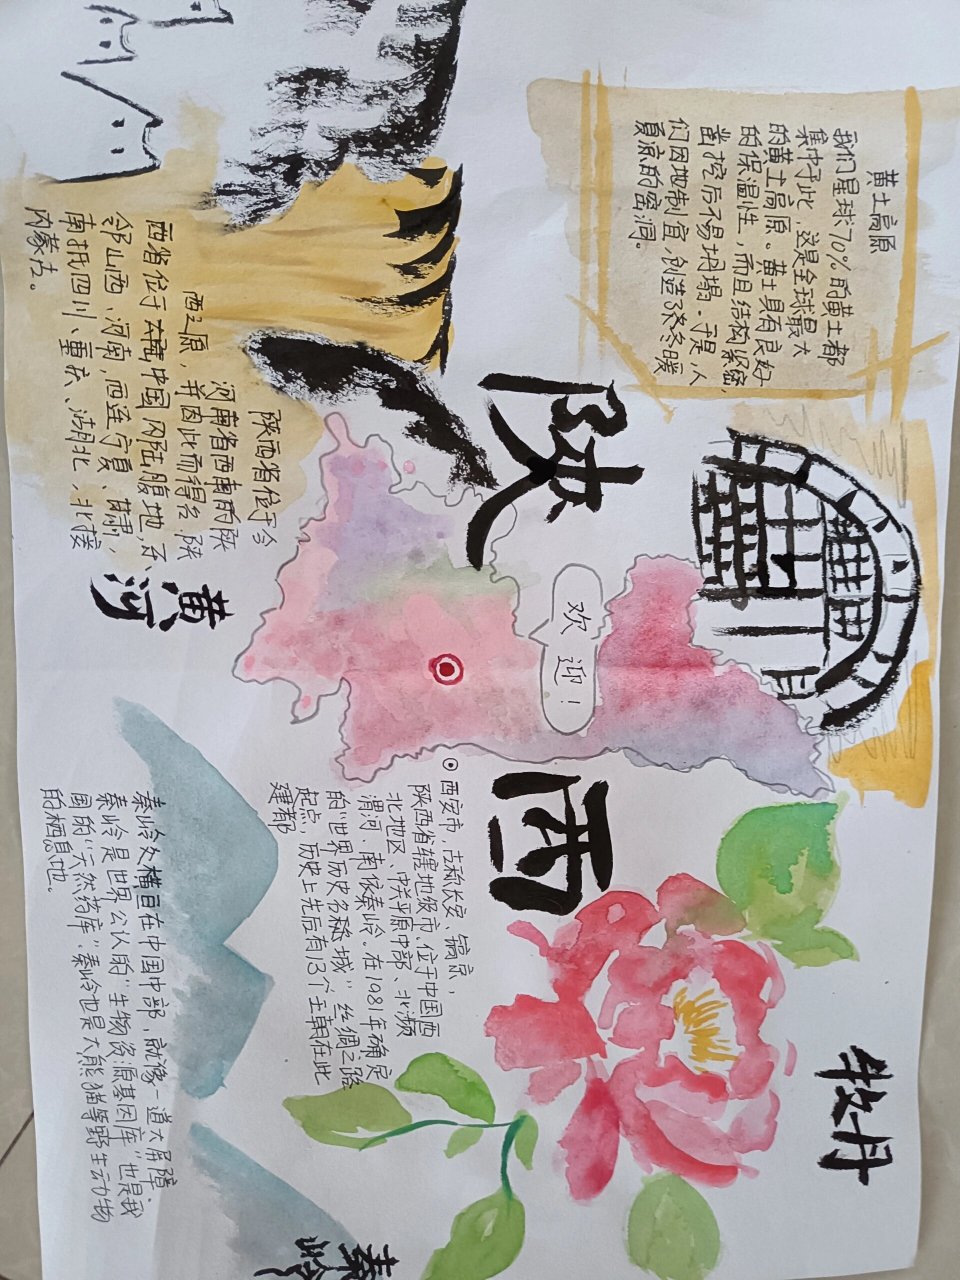 黄土高原
我们星球70%的黄土都
集中于此，这是全球最大
的黄土高原。黄土具有良好
的保温性，而且结构紧密，
凿挖后不易坍塌。于是，人
们因地制宜，创造了冬冬暖
夏凉的窑洞。
陕
西
欢迎！
牡丹
陕西省位于今
河南省西南的陕
西之原，并因此而得名 陕
西省位于中国内陆腹地，东
邻山西、河南，西连宁夏、甘肃，
南抵四川、重庆、湖北，北接
内蒙古。
黄河
西安市，古称长安、镐京，
陕西省辖地级市，位于中国西
北地区、关中平原中部、北濒
渭河，南依秦岭。在1981年确定
的“世界历史名城” 丝绸之路
起点，历史上先后有13个王朝在此
建都
秦岭又横亘在中国中部，就像一道大屏障.
秦岭是世界公认的“生物资源基因库”也是我
国的“天然药库”，秦岭也是大熊猫等野生动物
的栖息地。
秦岭